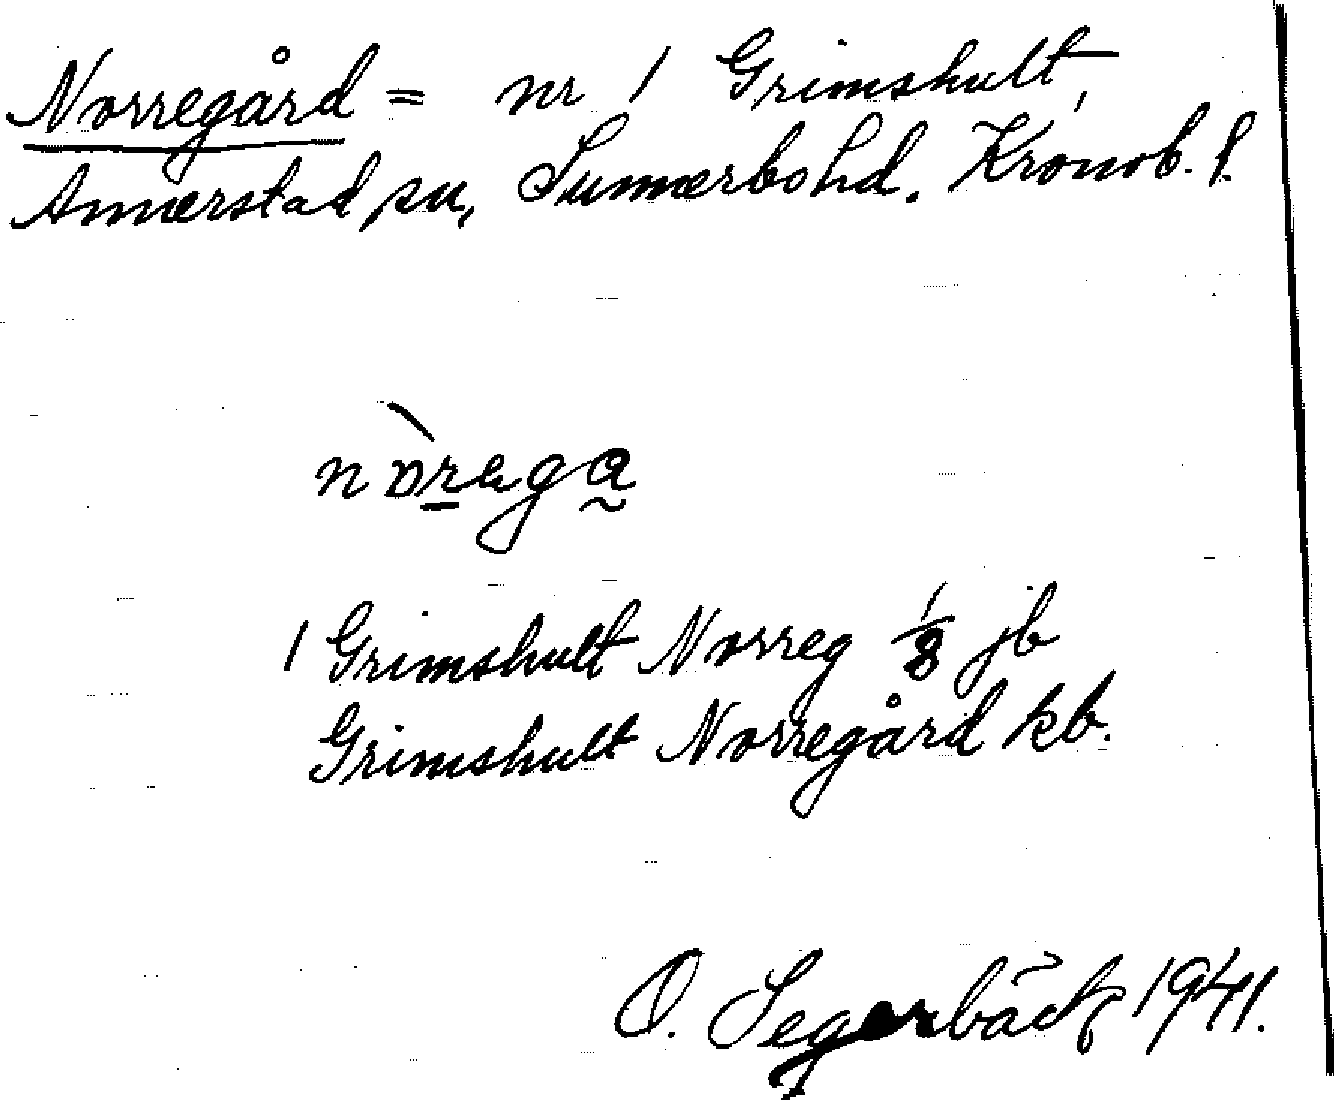 Norregård = nr 1 Grimshult,
Annerstad sn, Sunnerbo hd. Kronob. l.
nòrega
1 Grimshult Norreg 1/8 jb
Grimshult Norregård kb.
O. Segerbäck 1941.